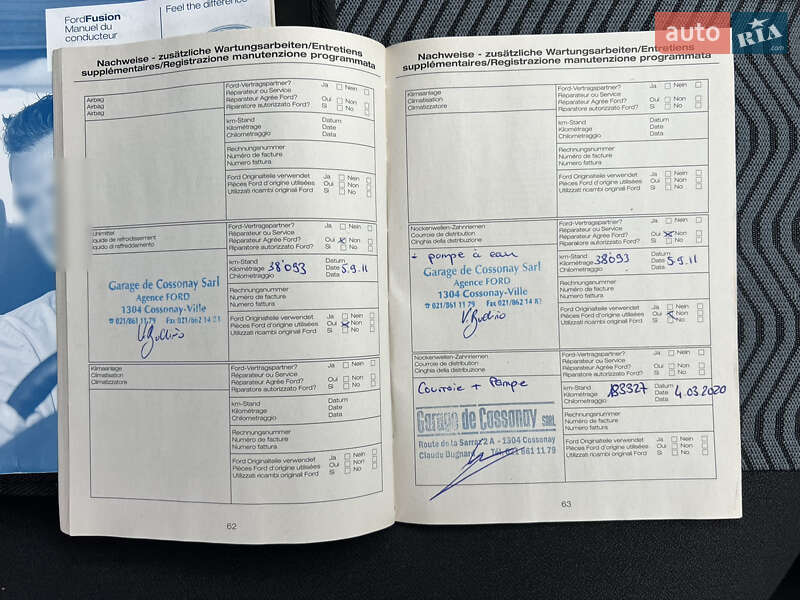 FordFusion
Manuel du
conducteur
Feel the difference
auto RIA
.com
Nachweise - zusätzliche Wartungsarbeiten/Entretiens
supplémentaires/Registrazione manutenzione programmata
Airbag
Airbag
Airbag
Ford-Vertragspartner? Ja Nein
Réparateur ou Service
Réparateur Agréé Ford? Oui Non
Riparatore autorizzato Ford? Si No
km-Stand Datum
Kilométrage Date
Chilometraggio Data
Rechnungsnummer
Numéro de facture
Numero fattura
Ford Originalteile verwendet Ja Nein
Pièces Ford d'origine utilisées Oui Non
Utilizzati ricambi original Ford Si No
liquide de refroidissement
liquido di raffreddamento
Ford-Vertragspartner? Ja Nein
Réparateur ou Service
Réparateur Agréé Ford? Oui x Non
Riparatore autorizzato Ford? Si No
km-Stand Datum
Kilométrage 38'093 Date 5.9.11
Chilometraggio Data
Garage de Cossonay Sarl
Agence FORD
1304 Cossonay-Ville
☎ 021/861 11 79 Fax 021/862 14 21
Rechnungsnummer
Numéro de facture
Numero fattura
Ford Originalteile verwendet Ja Nein
Pièces Ford d'origine utilisées Oui x Non
Utilizzati ricambi original Ford Si No
Klimaanlage
Climatisation
Climatizzatore
Ford-Vertragspartner? Ja Nein
Réparateur ou Service
Réparateur Agréé Ford? Oui Non
Riparatore autorizzato Ford? Si No
km-Stand Datum
Kilométrage Date
Chilometraggio Data
Rechnungsnummer
Numéro de facture
Numero fattura
Ford Originalteile verwendet Ja Nein
Pièces Ford d'origine utilisées Oui Non
Utilizzati ricambi original Ford Si No
62
Nachweise - zusätzliche Wartungsarbeiten/Entretiens
supplémentaires/Registrazione manutenzione programmata
Klimaanlage
Climatisation
Climatizzatore
Ford-Vertragspartner? Ja Nein
Réparateur ou Service
Réparateur Agréé Ford? Oui Non
Riparatore autorizzato Ford? Si No
km-Stand Datum
Kilométrage Date
Chilometraggio Data
Rechnungsnummer
Numéro de facture
Numero fattura
Ford Originalteile verwendet Ja Nein
Pièces Ford d'origine utilisées Oui Non
Utilizzati ricambi original Ford Si No
Nockenwellen-Zahnriemen
Courroie de distribution
Cinghia della distribuzione
Ford-Vertragspartner? Ja Nein
Réparateur ou Service
Réparateur Agréé Ford? Oui x Non
Riparatore autorizzato Ford? Si No
+ pompe a eau
km-Stand Datum
Kilométrage 38093 Date 5.9.11
Chilometraggio Data
Garage de Cossonay Sarl
Agence FORD
1304 Cossonay-Ville
☎ 021/861 11 79 Fax 021/862 14 21
Rechnungsnummer
Numéro de facture
Numero fattura
Ford Originalteile verwendet Ja Nein
Pièces Ford d'origine utilisées Oui x Non
Utilizzati ricambi original Ford Si No
Nockenwellen-Zahnriemen
Courroie de distribution
Cinghia della distribuzione
Ford-Vertragspartner? Ja Nein
Réparateur ou Service
Réparateur Agréé Ford? Oui Non
Riparatore autorizzato Ford? Si No
Courroie + Pompe
km-Stand Datum
Kilométrage 133327 Date 4.03.2020
Chilometraggio Data
Garage de Cossonay SARL
Route de la Sarraz 2 A - 1304 Cossonay
Claude Bugnard Tél. 021 861 11 79
Rechnungsnummer
Numéro de facture
Numero fattura
Ford Originalteile verwendet Ja Nein
Pièces Ford d'origine utilisées Oui Non
Utilizzati ricambi original Ford Si No
63